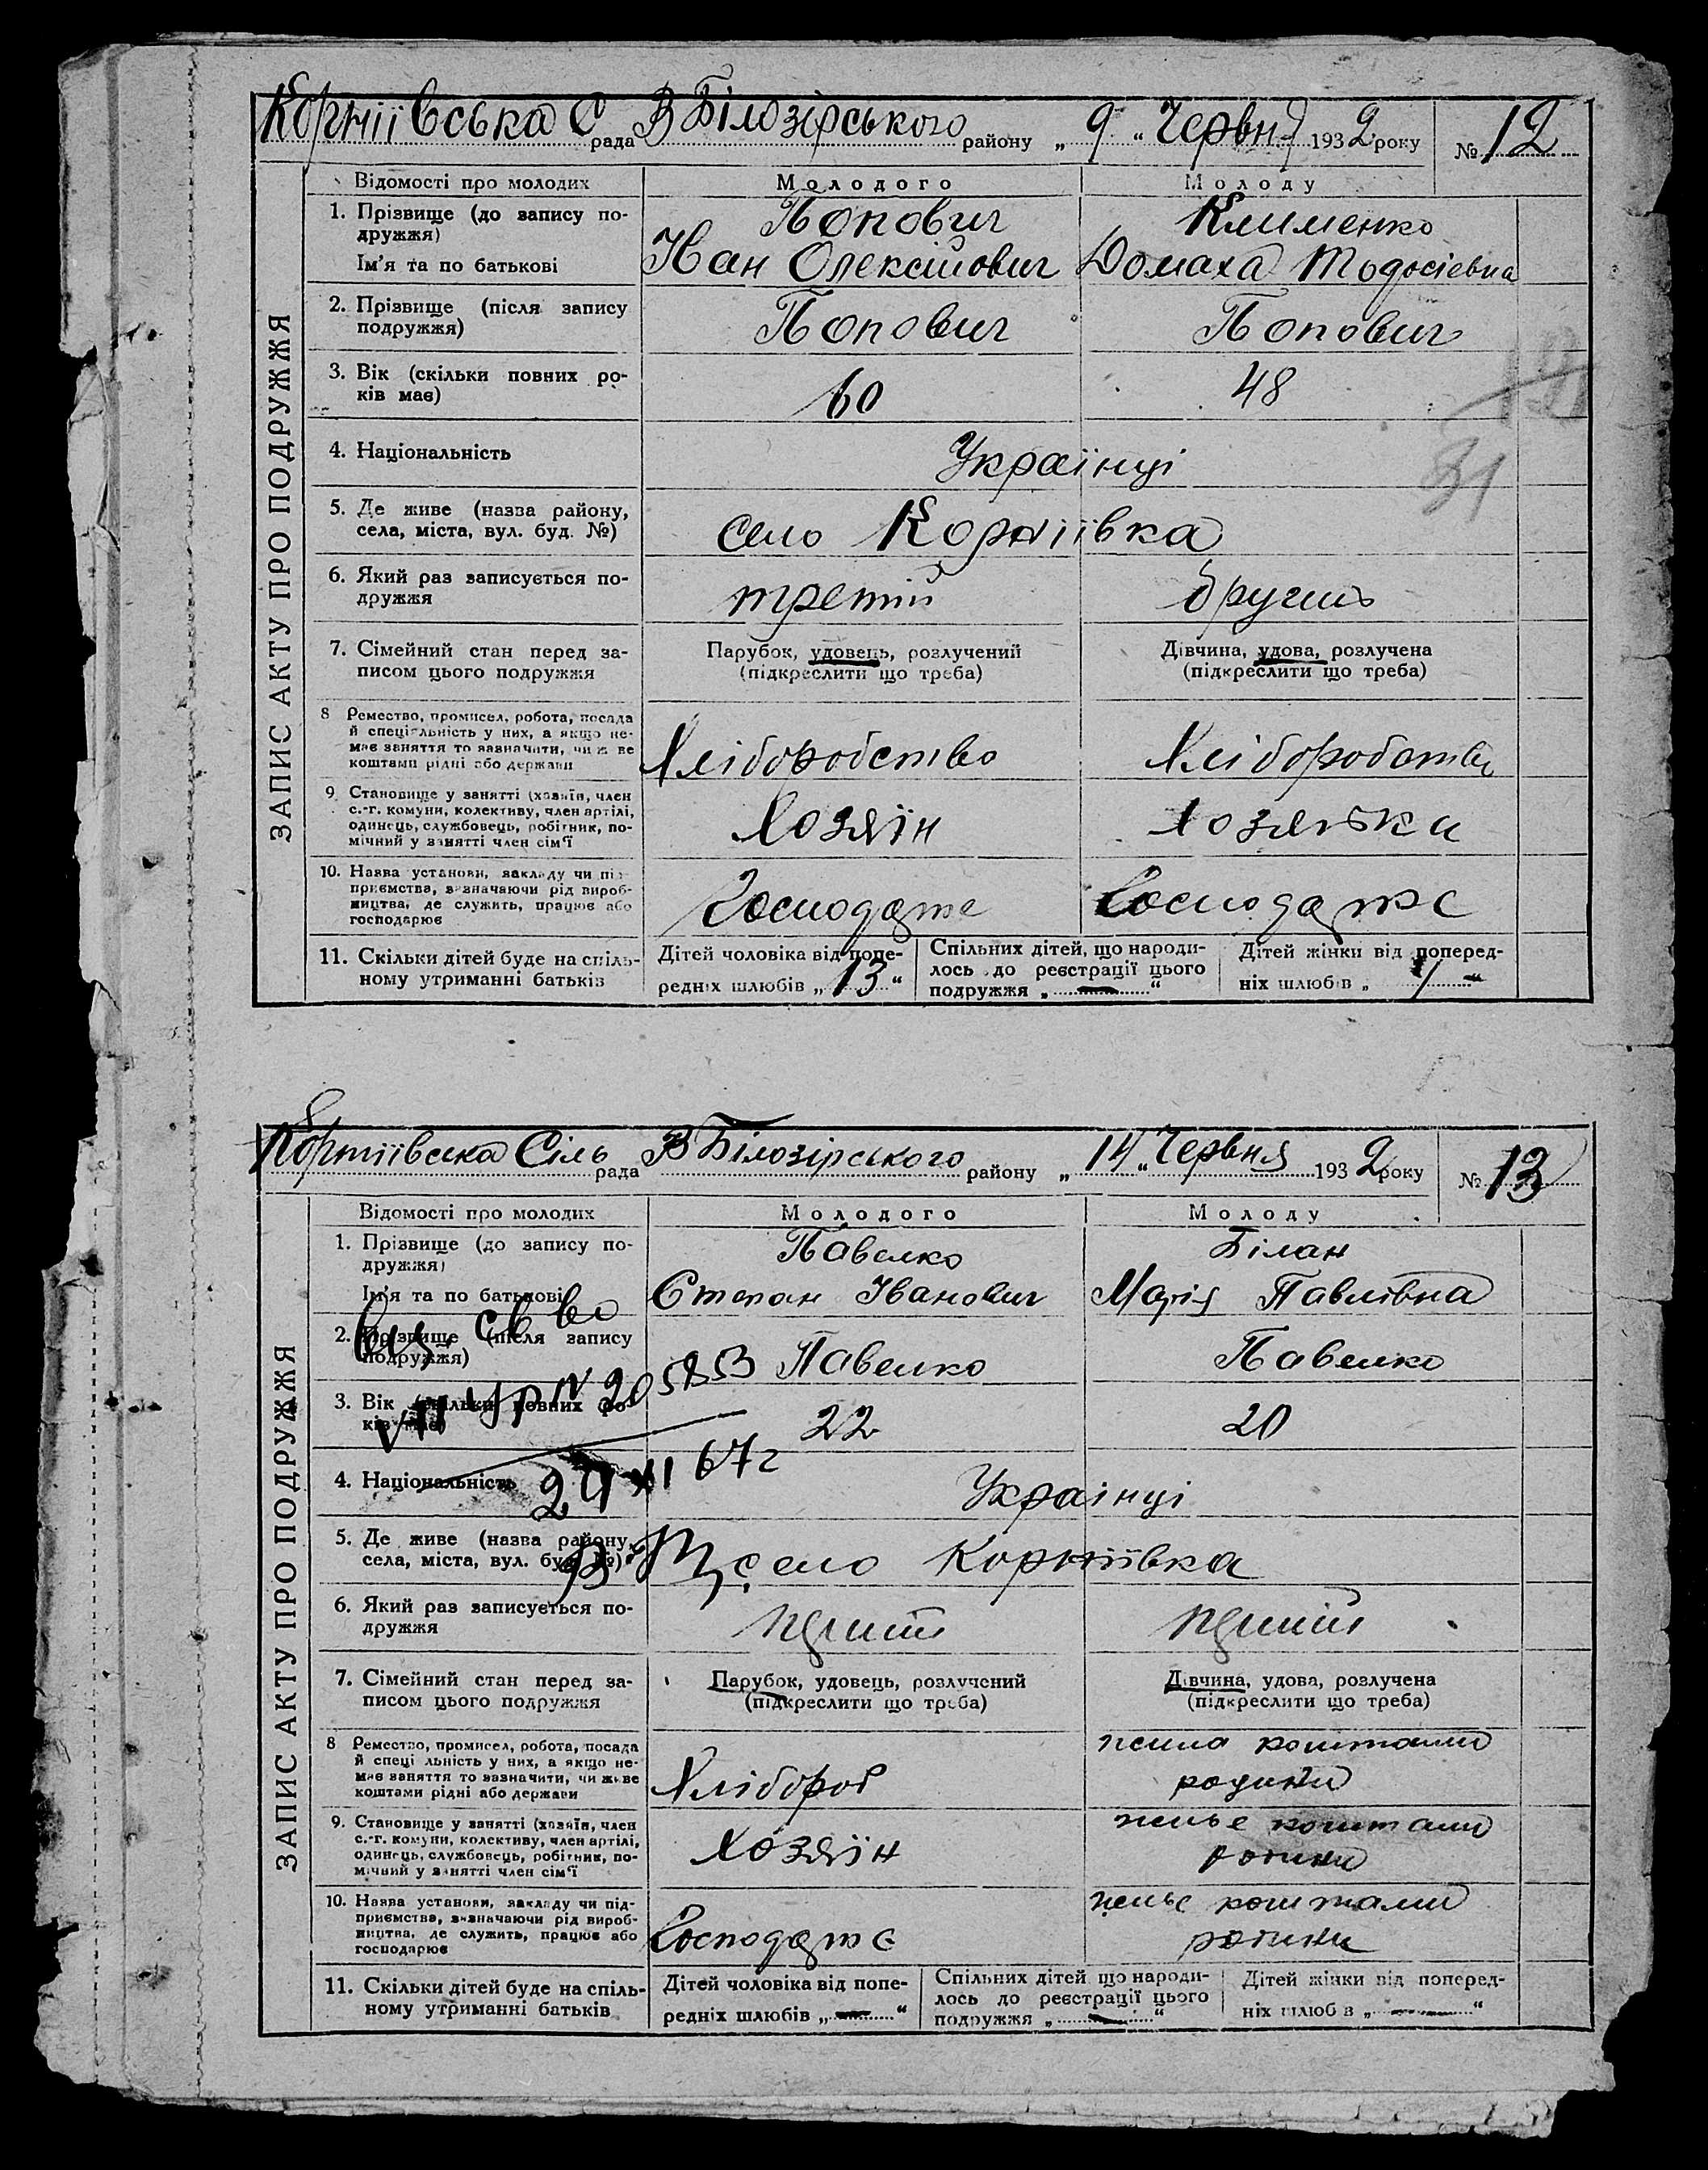 Корніївська С рада В Білозірського району „ 9 “ Червня 1932 року № 12
ЗАПИС АКТУ ПРО ПОДРУЖЖЯ
Відомості про молодих Молодого Молоду
1. Прізвище (до запису по- Попович Клименко
дружжя)
Ім'я та по батькові Іван Олексійович Домаха Тодосіевна
2. Прізвище (після запису
подружжя) Попович Попович
3. Вік (скільки повних ро-
ків має) 60 48
4. Національність Українці
31
5. Де живе (назва району,
села, міста, вул. буд. №) село Корніївка
6. Який раз записується по-
дружжя третій другий
7. Сімейний стан перед за- Парубок, удовець, розлучений Дівчина, удова, розлучена
писом цього подружжя (підкреслити що треба) (підкреслити що треба)
8 Ремество, промисел, робота, посада
й спеціяльність у них, а якщо не-
має заняття то зазначити, чи живе
коштами рідні або держави Хліборобство Хліборобство
9. Становище у занятті (хазяїн, член
с.-г. комуни, колективу, член артілі,
одинець, службовець, робітник, по-
мічний у занятті член сім'ї Хозяїн Хозяйка
10. Назва установи, закладу чи під-
приємства, зазначаючи рід вироб-
ництва, де служить, працює або
господарює
11. Скільки дітей буде на спіль- Дітей чоловіка від попе- Спільних дітей, що народи- Дітей жінки від поперед-
ному утриманні батьків редніх шлюбів „ 13 “ лось до реєстрації цього ніх шлюбів „ 1 “
подружжя „ — “
Корніївська Сіль рада В Білозірського району „ 14 “ Червня 1932 року № 13
ЗАПИС АКТУ ПРО ПОДРУЖЖЯ
Відомості про молодих Молодого Молоду
1. Прізвище (до запису по- Павелко Білан
дружжя)
Ім'я та по батькові Степан Іванович Марія Павлівна
2. Прізвище (після запису
подружжя) Павелко Павелко
3. Вік (скільки повних ро-
ків має) 22 20
67г
4. Національність Українці
5. Де живе (назва району,
села, міста, вул. буд. №) село Корніївка
6. Який раз записується по-
дружжя
7. Сімейний стан перед за- Парубок, удовець, розлучений Дівчина, удова, розлучена
писом цього подружжя (підкреслити що треба) (підкреслити що треба)
8 Ремество, промисел, робота, посада коштами
й спеціяльність у них, а якщо не- родини
має заняття то зазначити, чи живе
коштами рідні або держави Хлібороб
9. Становище у занятті (хазяїн, член коштами
с.-г. комуни, колективу, член артілі, родини
одинець, службовець, робітник, по-
мічний у занятті член сім'ї Хозяїн
10. Назва установи, закладу чи під- коштами
приємства, зазначаючи рід вироб- родини
ництва, де служить, працює або
господарює
11. Скільки дітей буде на спіль- Дітей чоловіка від попе- Спільних дітей, що народи- Дітей жінки від поперед-
ному утриманні батьків редніх шлюбів „ — “ лось до реєстрації цього ніх шлюбів „ — “
подружжя „ — “